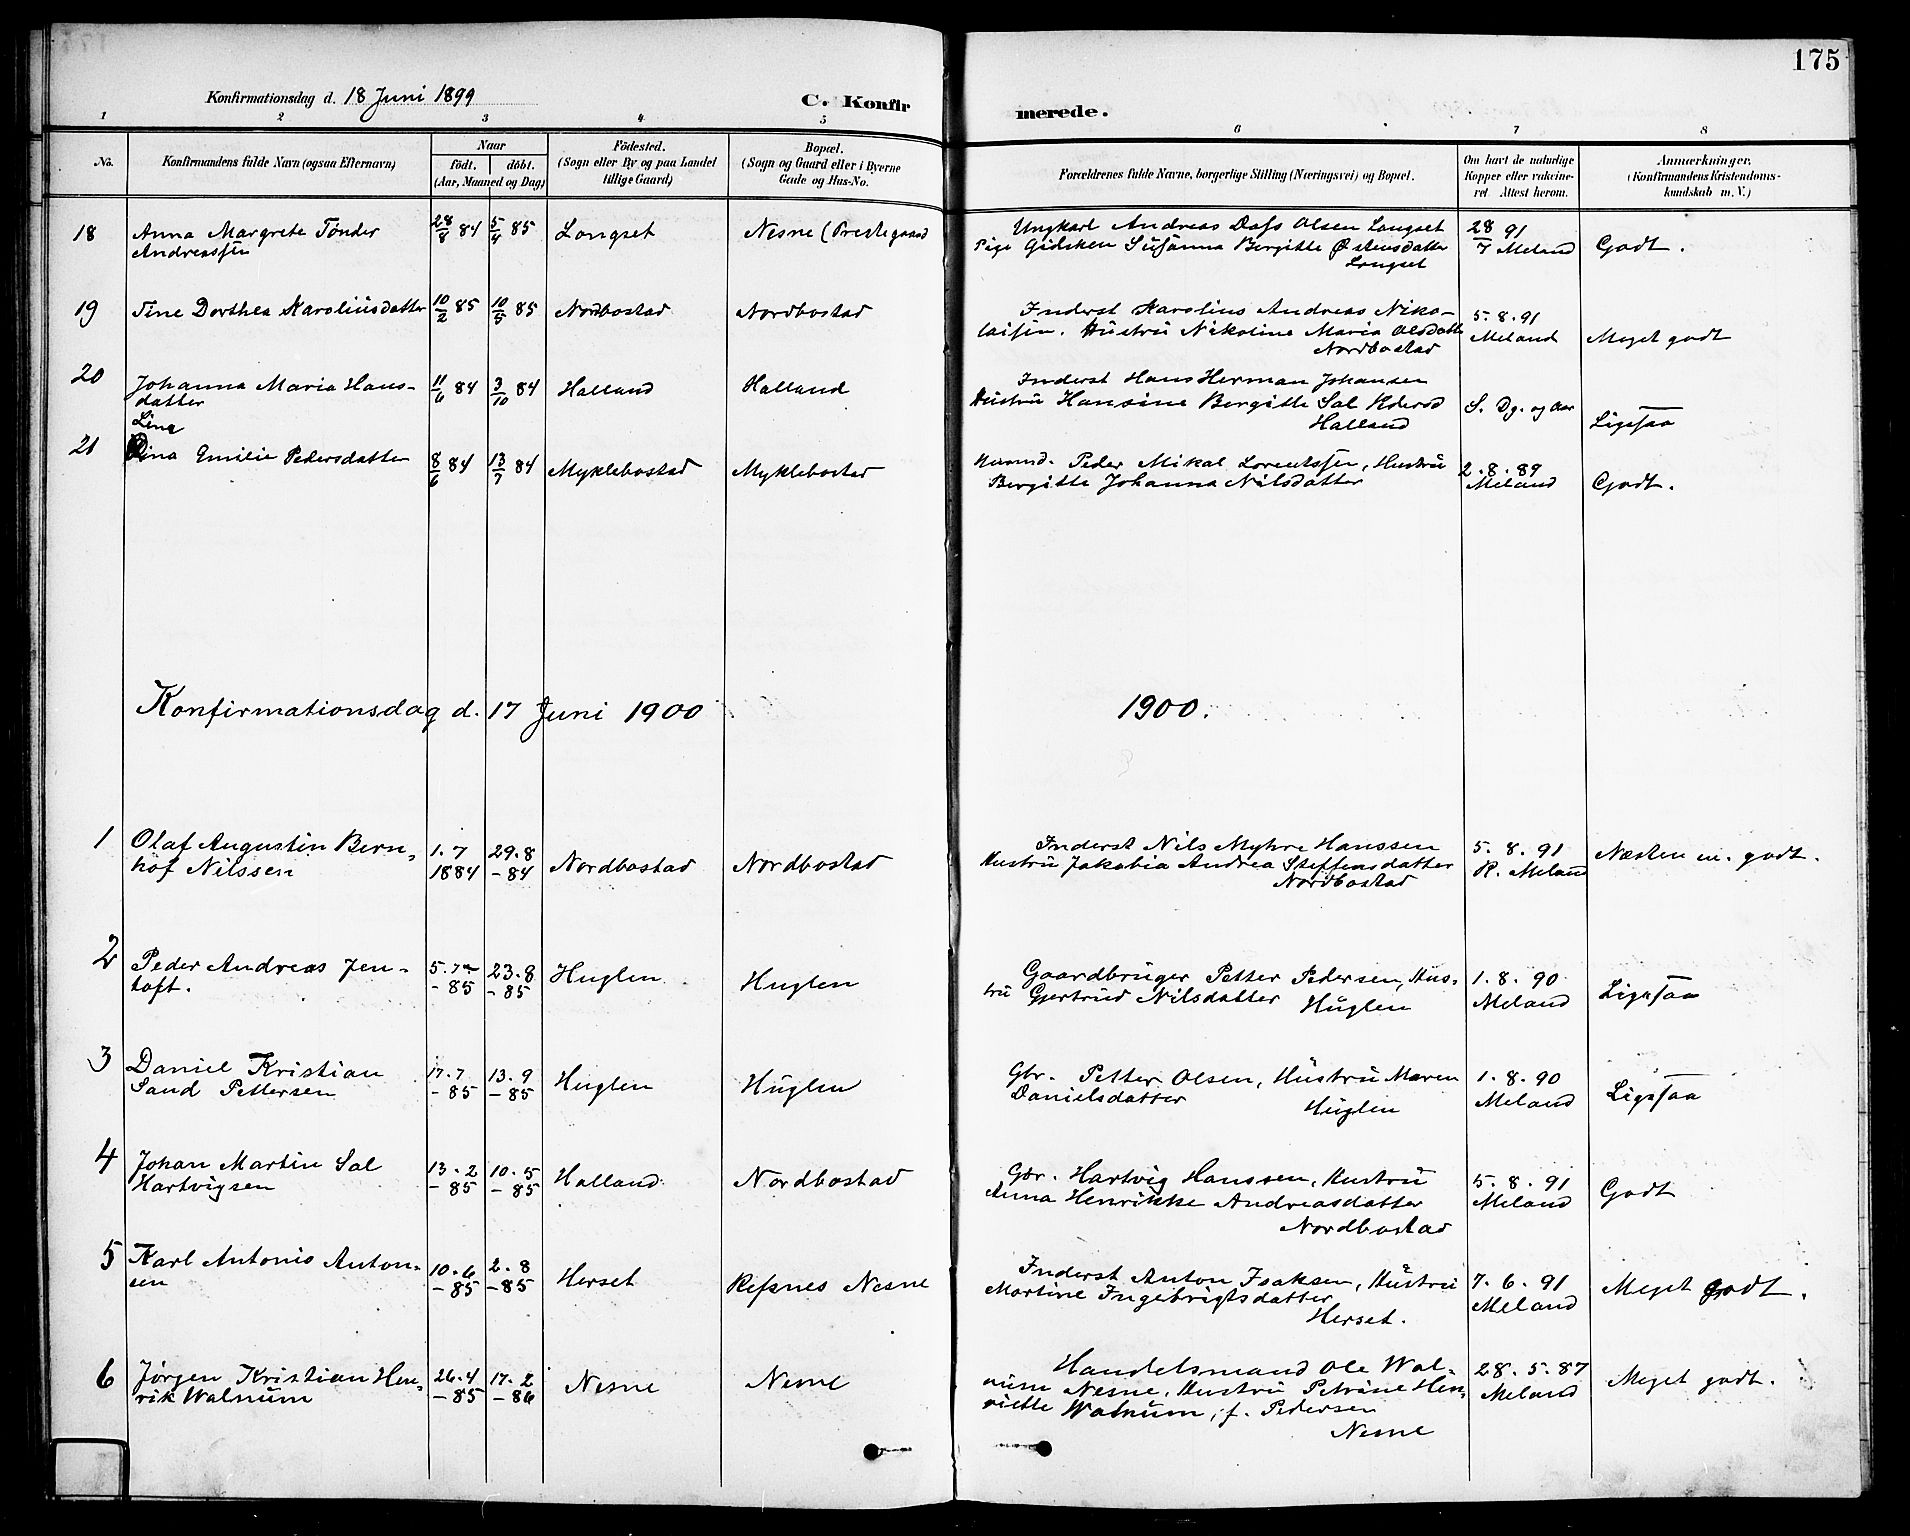 175
Konfirmationsdag d. 18 Juni 1899
C. Konfir
merede.
1 2 3 4 5 6 7 8
No.
Konfirmandens fulde Navn (ogsaa Efternavn)
Naar
født. døbt.
(Aar, Maaned og Dag)
Fødested.
(Sogn eller By og paa Landet
tillige Gaard)
Bopæl.
(Sogn og Gaard eller i Byerne
Gade og Hus-No.
Forældrenes fulde Navne, borgerlige Stilling (Næringsvei) og Bopæl.
Om havt de naturlige
Kopper eller vakcine-
ret Attest herom.
Anmærkninger.
(Konfirmandens Kristendoms-
kundskab m. V.)
18 Anna Margrete Tønder 28/8 84 5/4 85 Longset Nesne (Prestegaard Ungkarl Andreas Dass Olsen Longset 28/7 91
Andreassen Pige Gidsken Susanna Bergitte Østensdatter Meland Godt.
Longset
19 Tine Dorthea Karoliusdatter 10/2 85 10/5 85 Nordbostad Nordbostad Inderst Karolius Andreas Niko- 5.8.91
laisen. Hustru Nikoline Maria Olsdatt Meland Meget godt
Nordbostad
20 Johanna Maria Hans- 11/6 84 3/10 84 Halland Halland Inderst Hans Herman Johansen
datter Hustru Hansine Bergitte Sal S. Dg. og Aar Ligesaa
Halland
Line
21 Dina Emilie Pedersdatter 8/6 84 13/7 84 Myklebostad Myklebostad Peder Mikal Lorentssen, Hustru 2.8.89
Bergitte Johanna Nilsdatter Meland Godt.
Konfirmationsdag d. 17 Juni 1900 1900.
1 Olaf Augustin Bern, 1.7 29.8 Nordbostad Nordbostad Inderst Nils Myhre Hanssen 5.8.91 Næsten m. godt.
hof Nilssen 1884 -84 Hustru Jakobia Andrea Steffensdatter R. Meland
Nordbostad
2 Peder Andreas Jen- 5.7 23.8 Huglen Huglen Gaardbruger Petter Pedersen, Hus- 1.8.90 Ligesaa
toft. -85 -85 tru Gjertrud Nilsdatter Huglen Meland
3 Daniel Kristian 17.7 13.9 Huglen Huglen Gbr. Petter Olsen, Hustru Maren 1.8.90 Ligesaa
Sand Pettersen -85 -85 Danielsdatter Huglen Meland
4 Johan Martin Sal 13.2 10.5 Halland Nordbostad Gbr. Hartvig Hanssen, Hustru 5.8.91 Godt
Hartvigsen -85 -85 Anna Henrikke Andreasdatter Meland
Nordbostad
5 Karl Antonio Anton- 10.6 2.8 Herset Refsnes Nesne Inderst Anton Isaksen, Hustru 7.6.91 Meget godt.
sen -85 -85 Martine Ingebrigtsdatter Meland
Herset.
6 Jørgen Kristian Hen, 26.4 17.2 Nesne Nesne Handelsmand Ole Wal- 28.5.87 Meget godt.
rik Walnum -85 -86 num Nesne, Hustru Petrine Hen, Meland
riette Walnum, f. Pedersen
Nesne